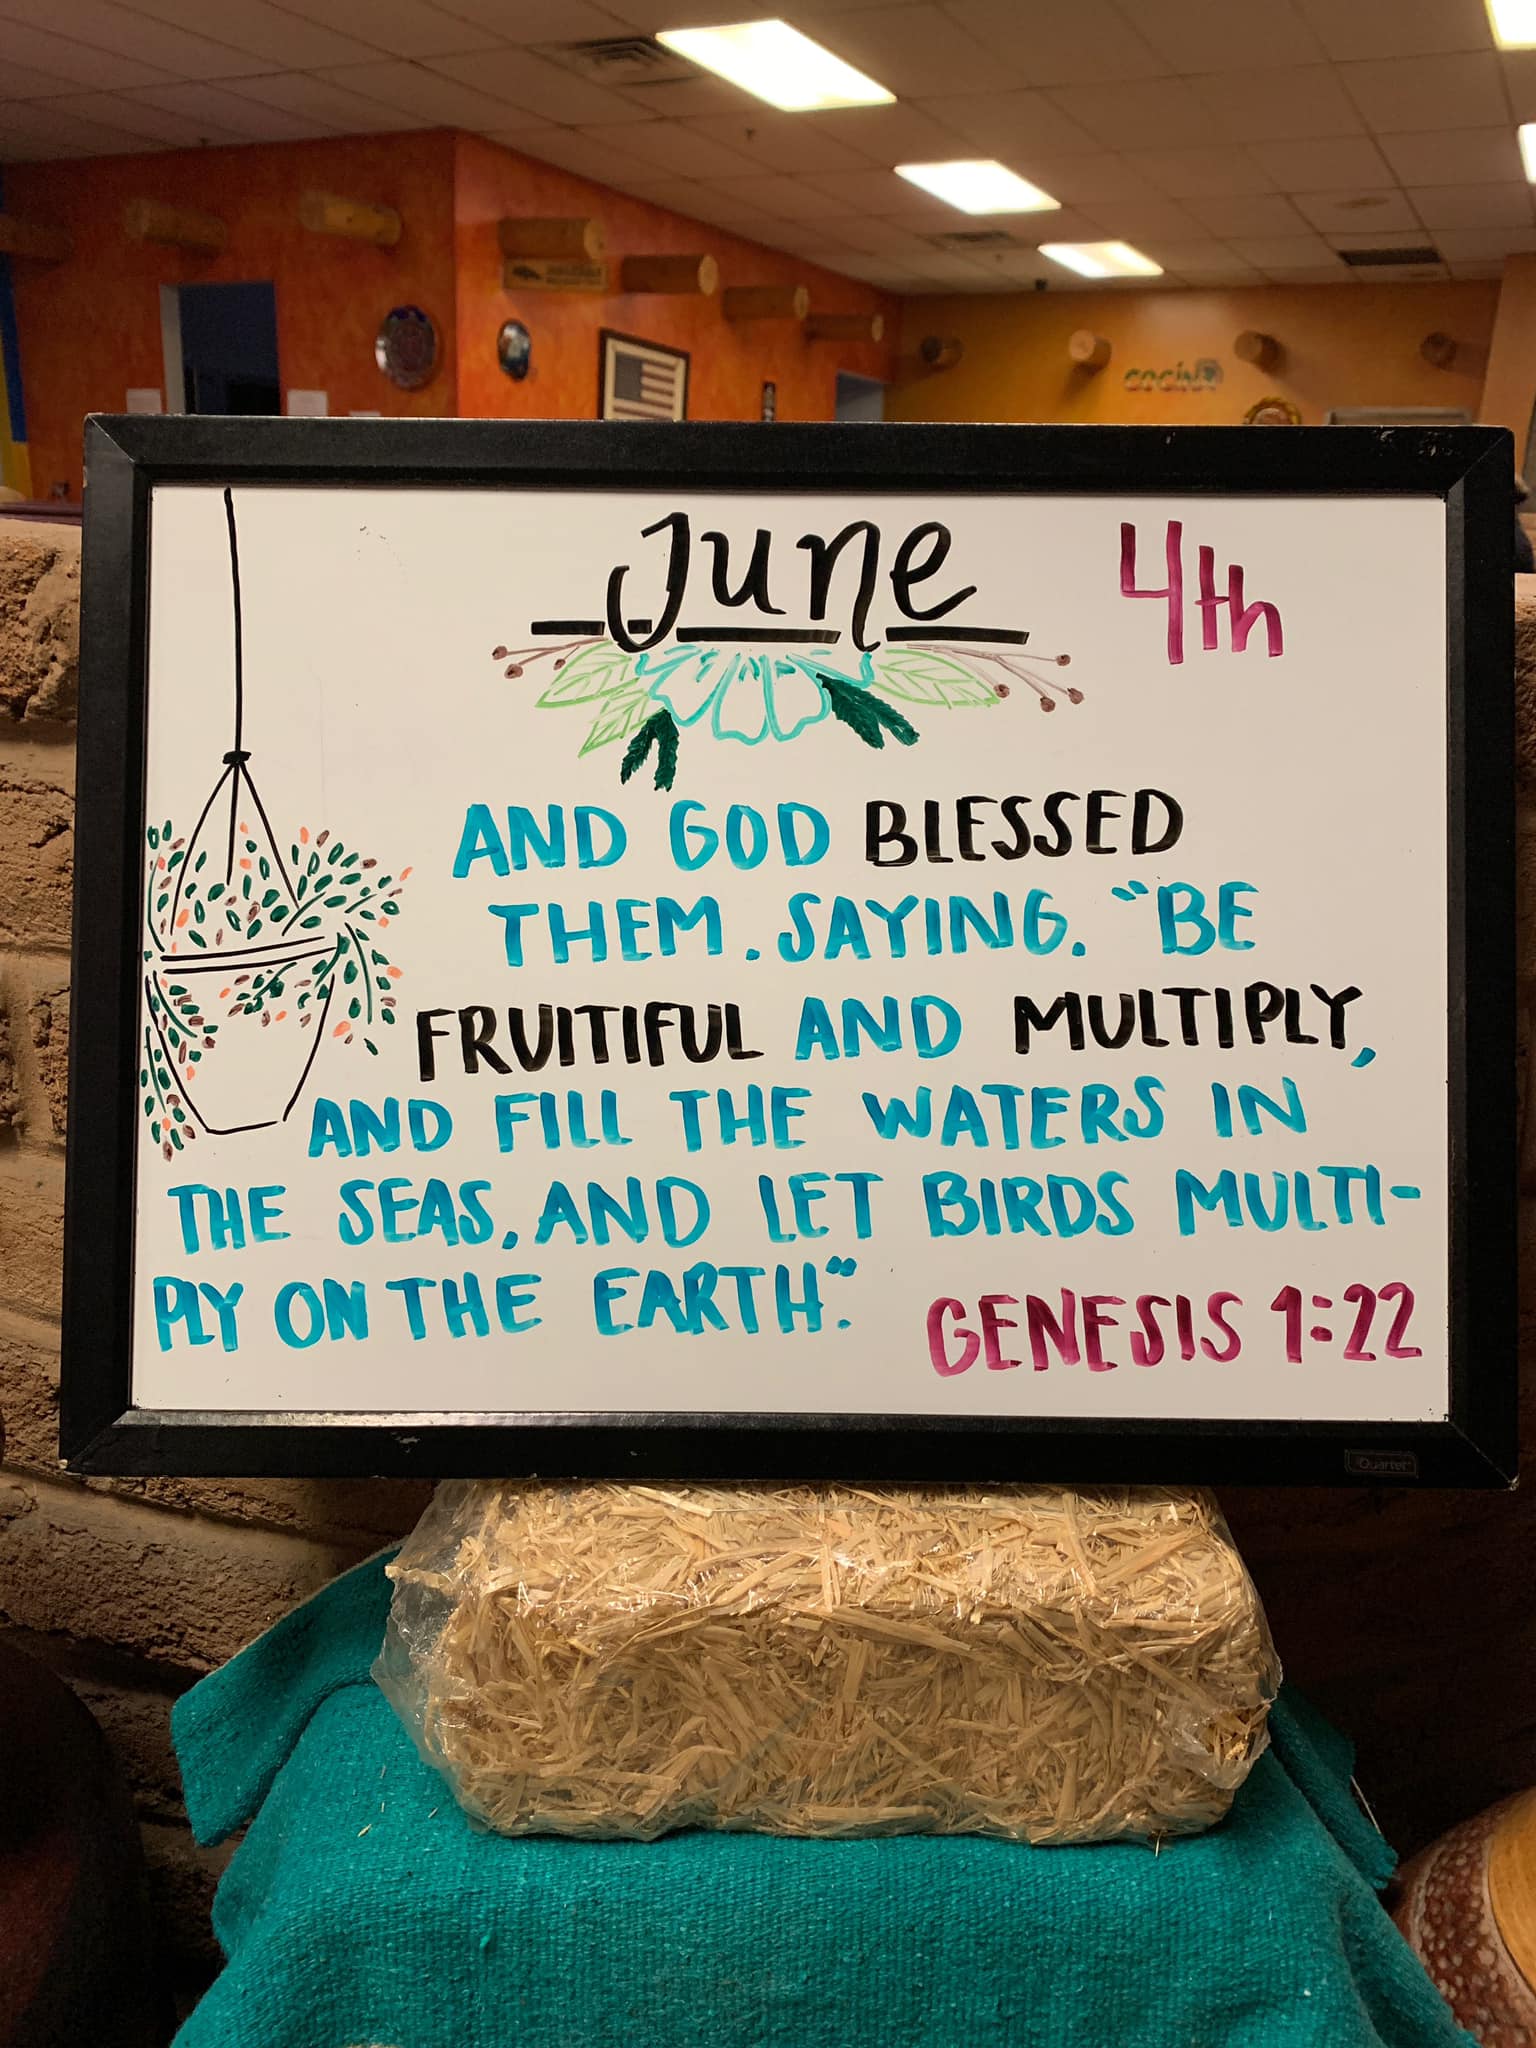 cocina
June 4th
AND GOD BLESSED
THEM. SAYING. "BE
FRUITIFUL AND MULTIPLY,
AND FILL THE WATERS IN
THE SEAS, AND LET BIRDS MULTI-
PLY ON THE EARTH".
GENESIS 1:22
Quartet